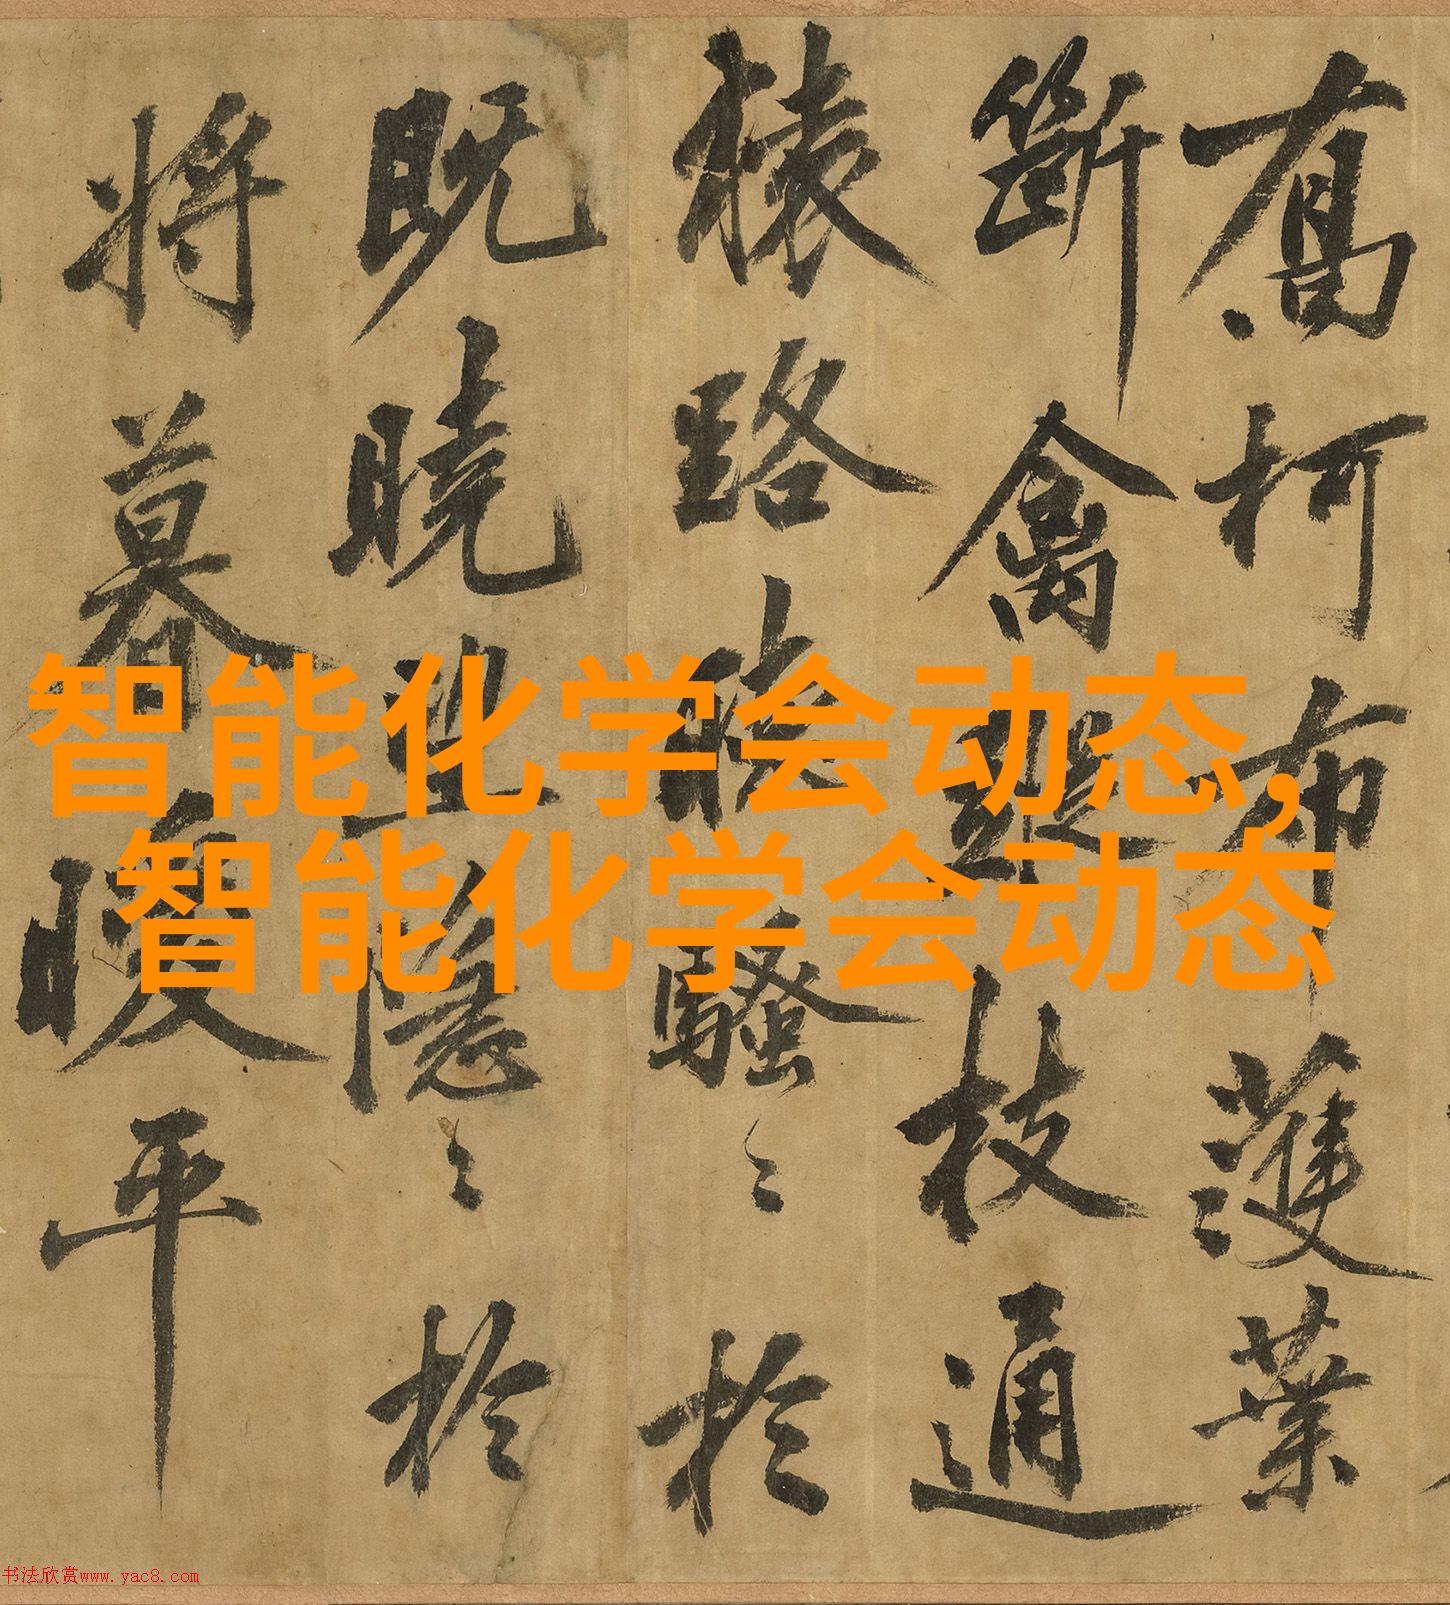 喬柯布護葉
斷禽蹤枝通
猿路騷〻於
既曉望隱〻於
將暮暖平
智能化学会动态,
智能化学会动态
书法欣赏www.yac8.com